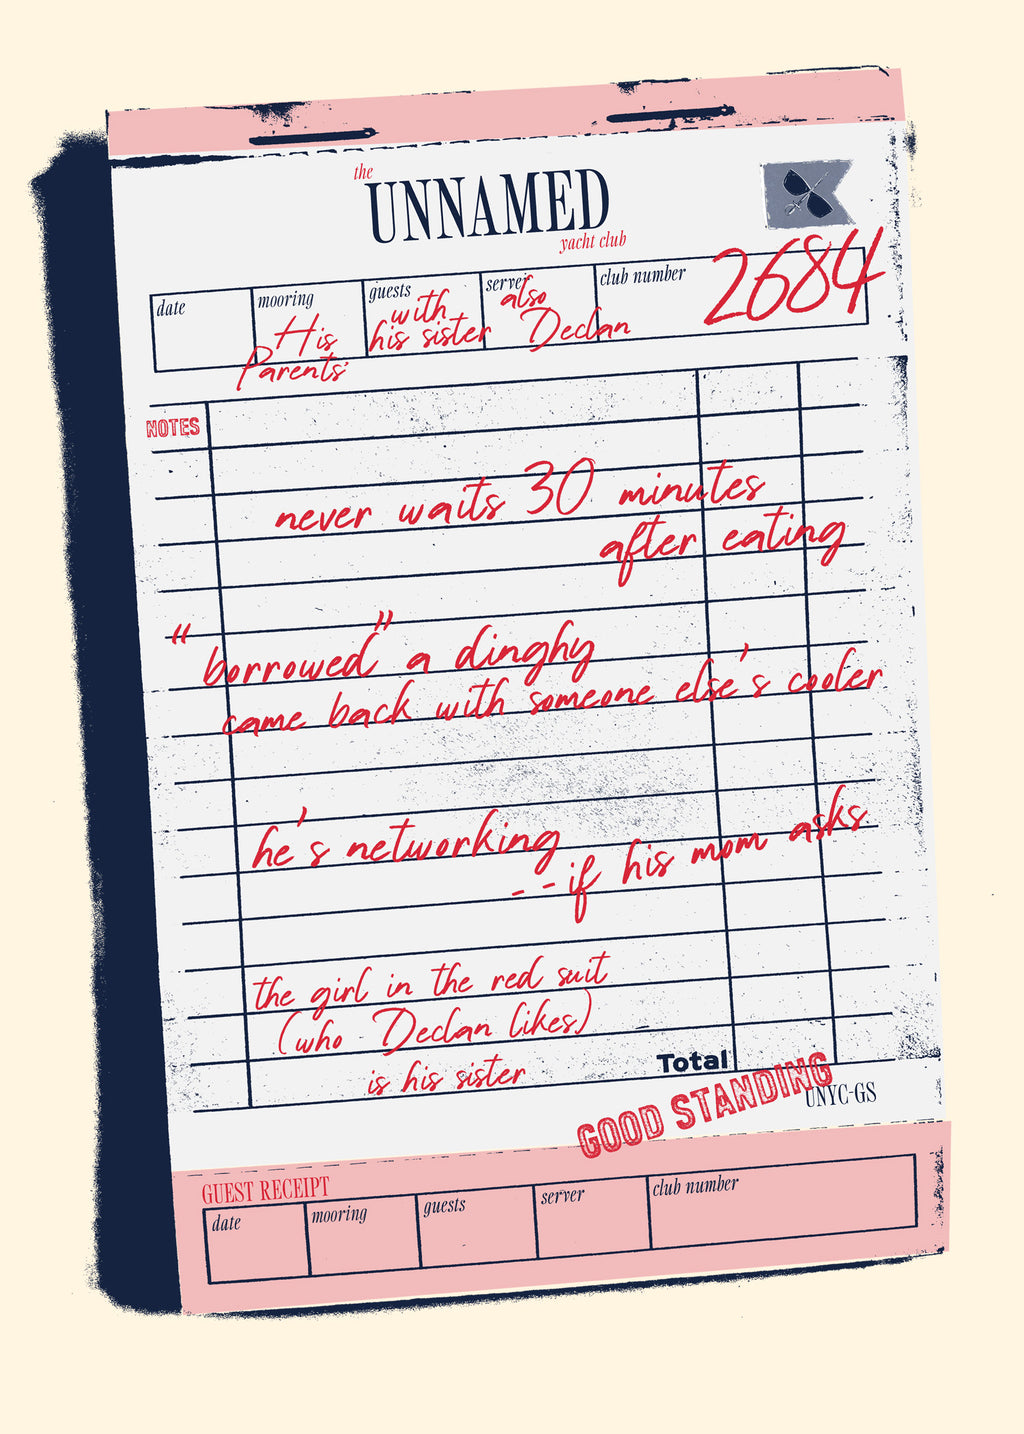 the
UNNAMED
yacht club
date
mooring
His
Parents'
guests
with
his sister
server
also
Declan
club number
2684
NOTES
never waits 30 minutes
after eating
"borrowed" a dinghy
came back with someone else's cooler
he's networking
--if his mom asks
the girl in the red suit
(who Declan likes)
is his sister
Total
GOOD STANDING
UNYC-GS
GUEST RECEIPT
date
mooring
guests
server
club number